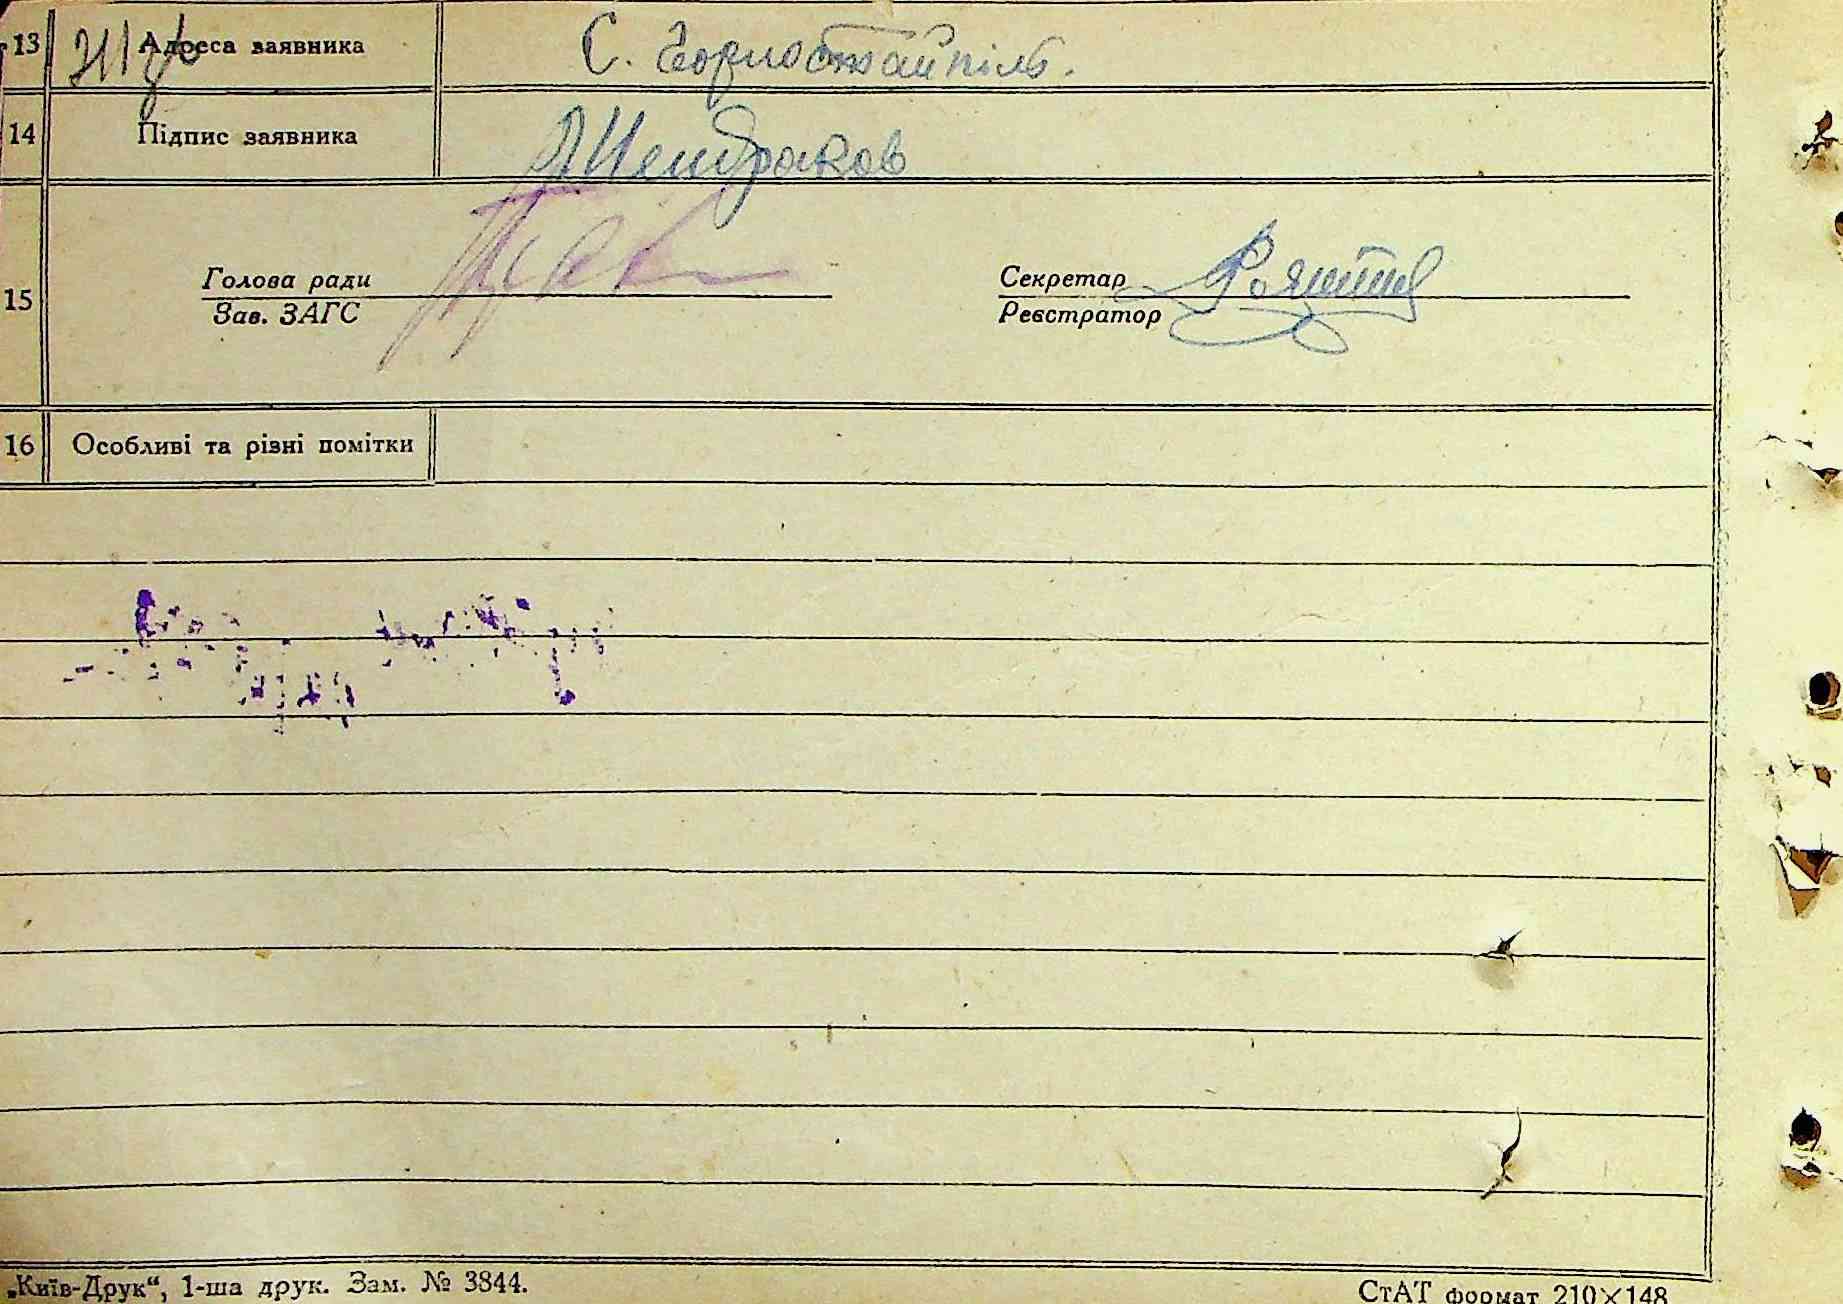 13 Адреса заявника С. Горностайпіль.
14 Підпис заявника
15 Голова ради Секретар
Зав. ЗАГС Реєстратор
16 Особливі та різні помітки
„Київ-Друк“, 1-ша друк. Зам. № 3844. СтАТ формат 210×148